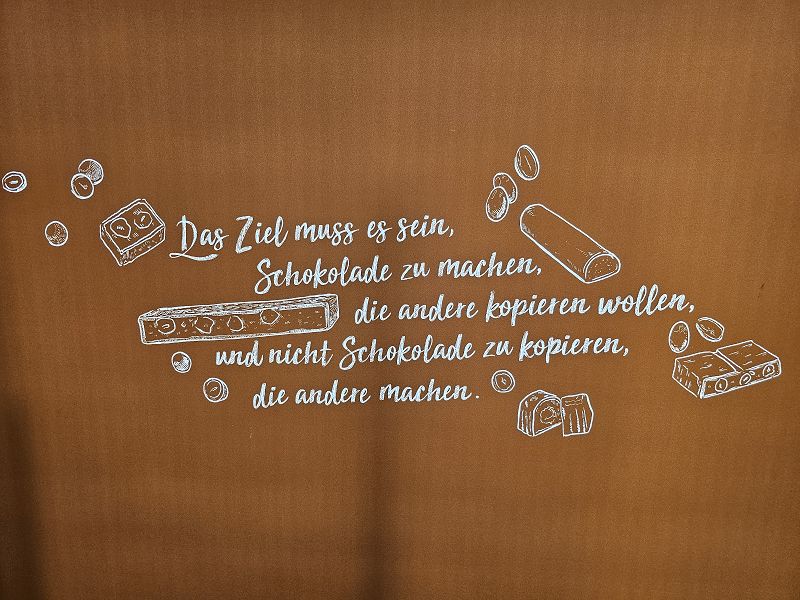 Das Ziel muss es sein,
Schokolade zu machen,
die andere kopieren wollen,
und nicht Schokolade zu kopieren,
die andere machen.